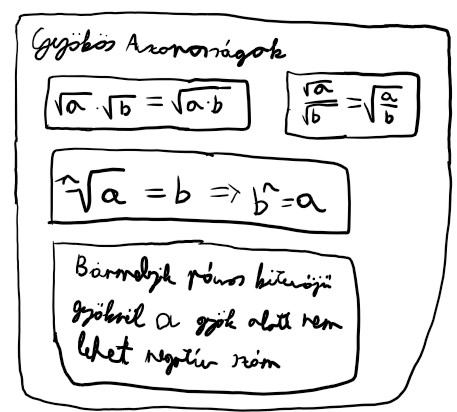 Gyökös Azonosságok
√a · √b = √a·b
√a/√b = √a/b
ⁿ√a = b => bⁿ = a
Bármelyik páros kitevőjű
gyöknél a gyök alatt nem
lehet negatív szám